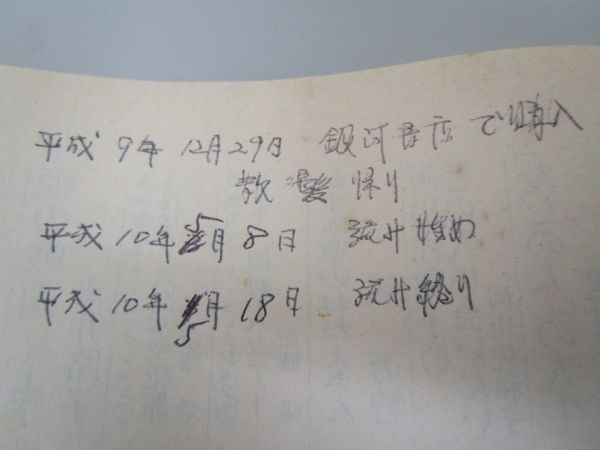 平成 9年 12月29日 銀河書店で購入
散髪 帰り
平成 10年 5月 8日 読み始め
平成 10年 5月 18日 読み終り